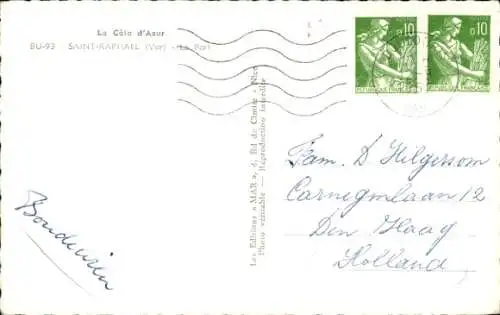 La Côte d'Azur
BU-93 - SAINT-RAPHAEL (Var) - Le Port
0,10
0,10
Les Editions « MAR », 4, Bd de Cimiez - Nice
Photo véritable — Reproduction Interdite
Fam. D Hilgersom
Carnegielaan 12
Den Haag
Holland